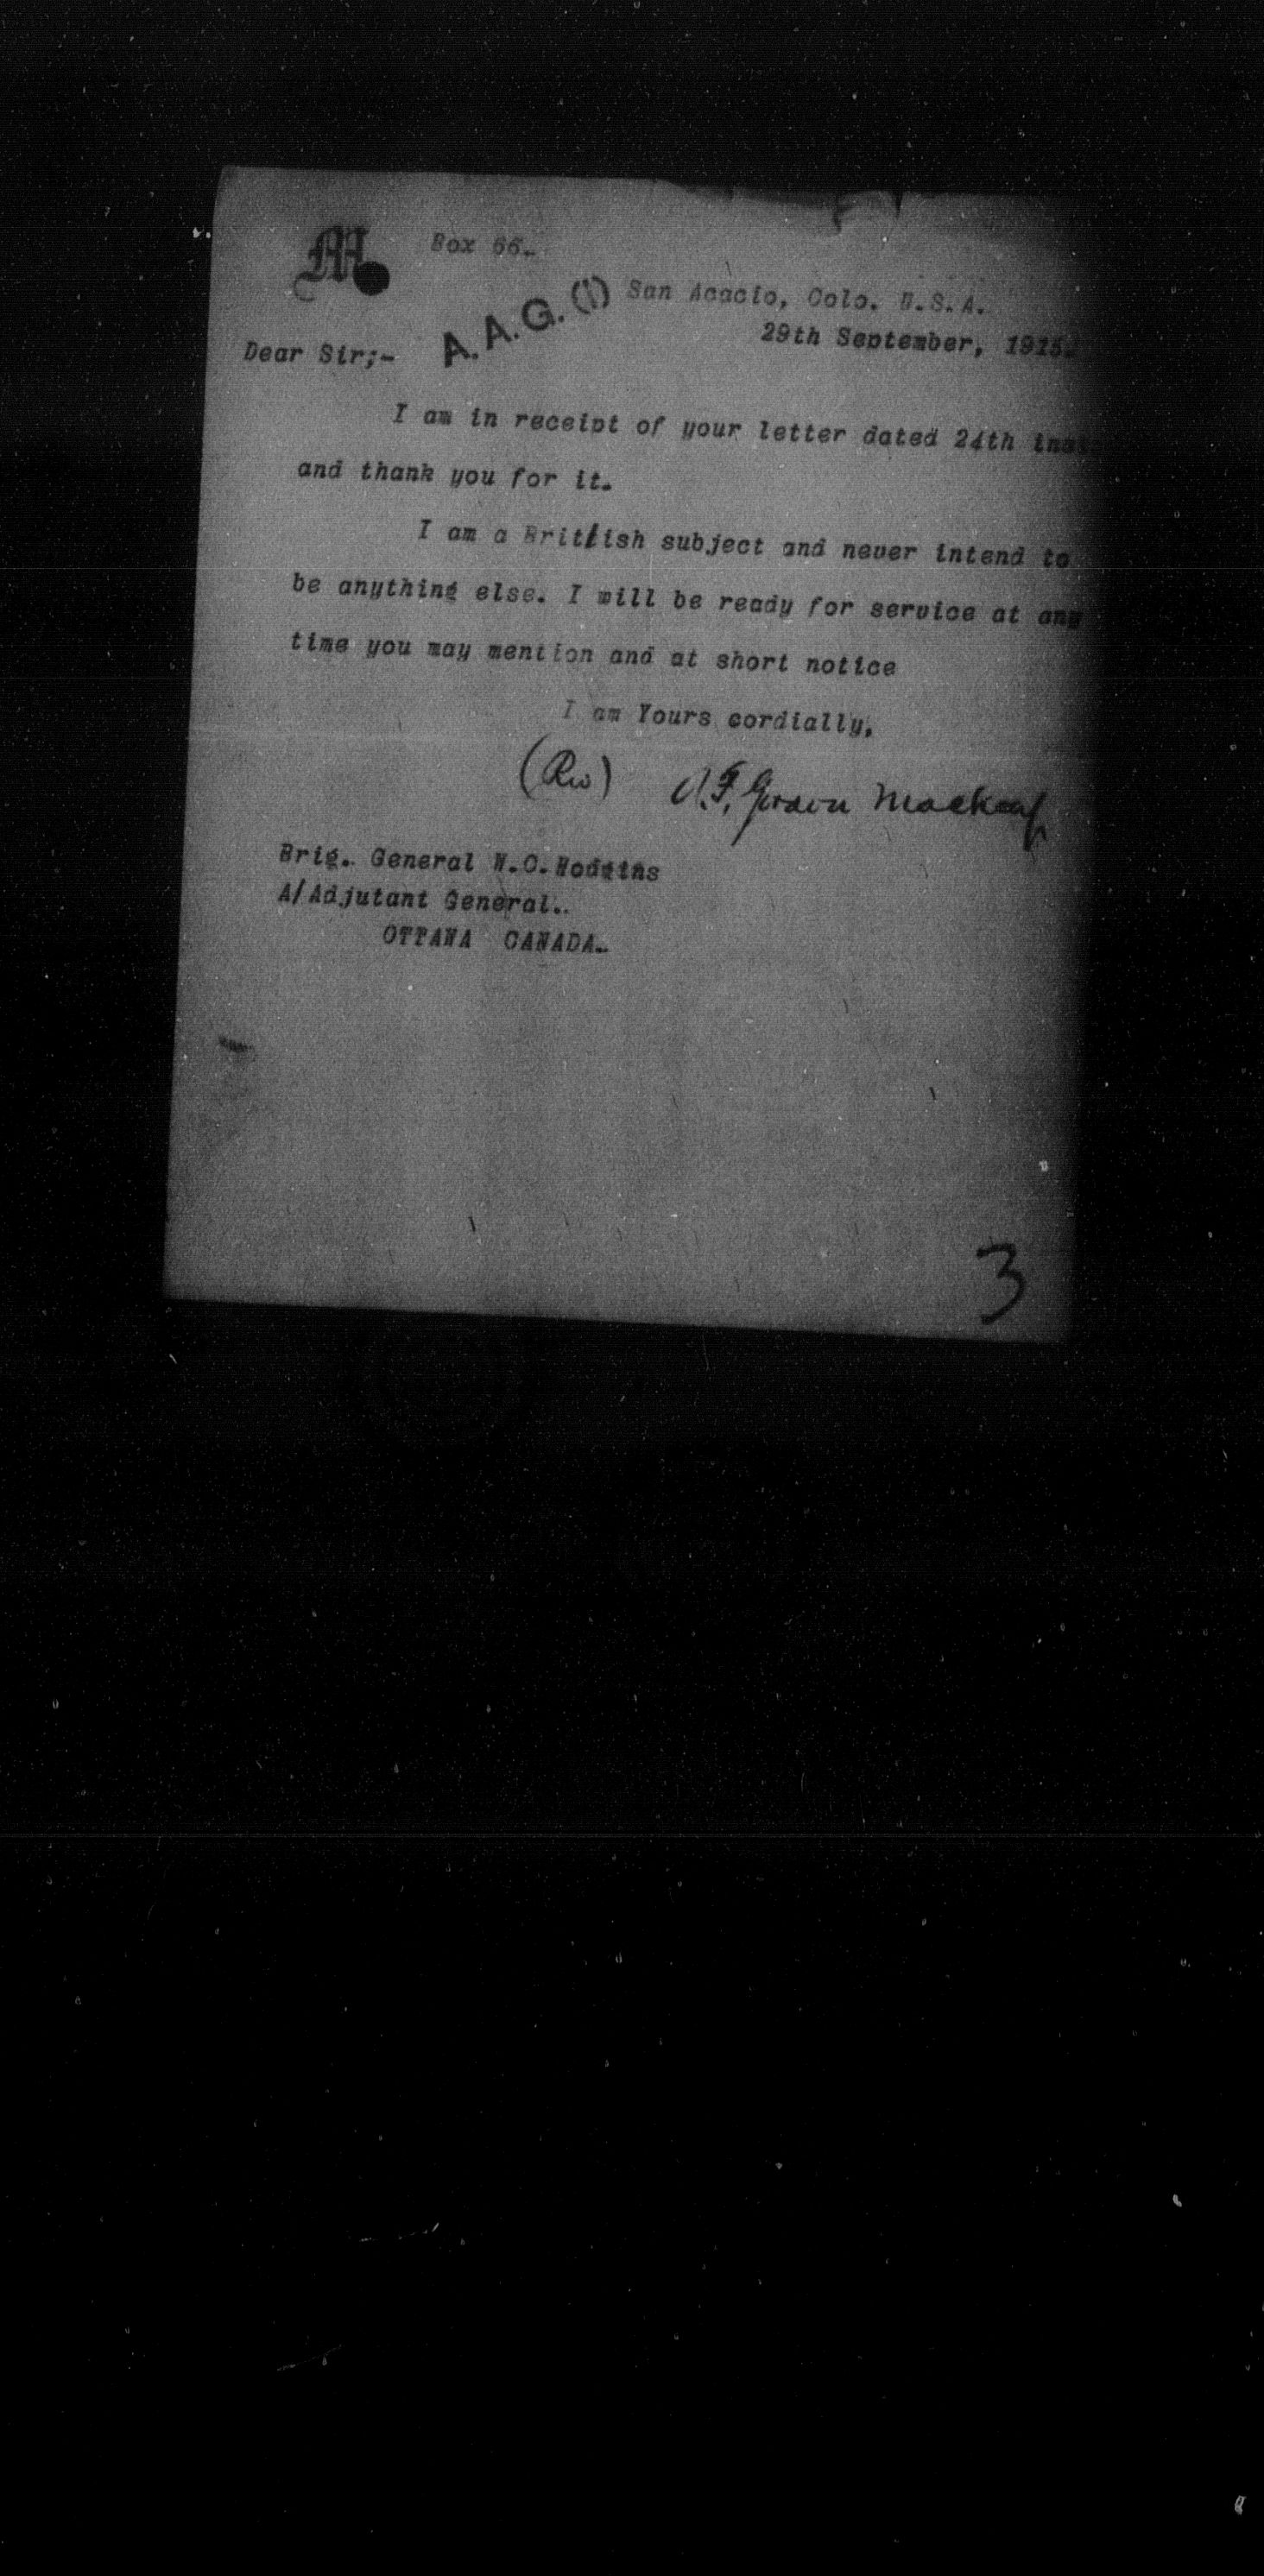 M
Box 66.
A.A.G.(1)
San Acacio, Colo. U.S.A.
29th September, 1915.
Dear Sir;-
I am in receipt of your letter dated 24th inst
and thank you for it.
I am a British subject and never intend to
be anything else. I will be ready for service at any
time you may mention and at short notice
I am Yours cordially,
(Rev) Gordon Mackay
Brig. General W.O. Hodgins
A/Adjutant General..
OTTAWA CANADA.
3